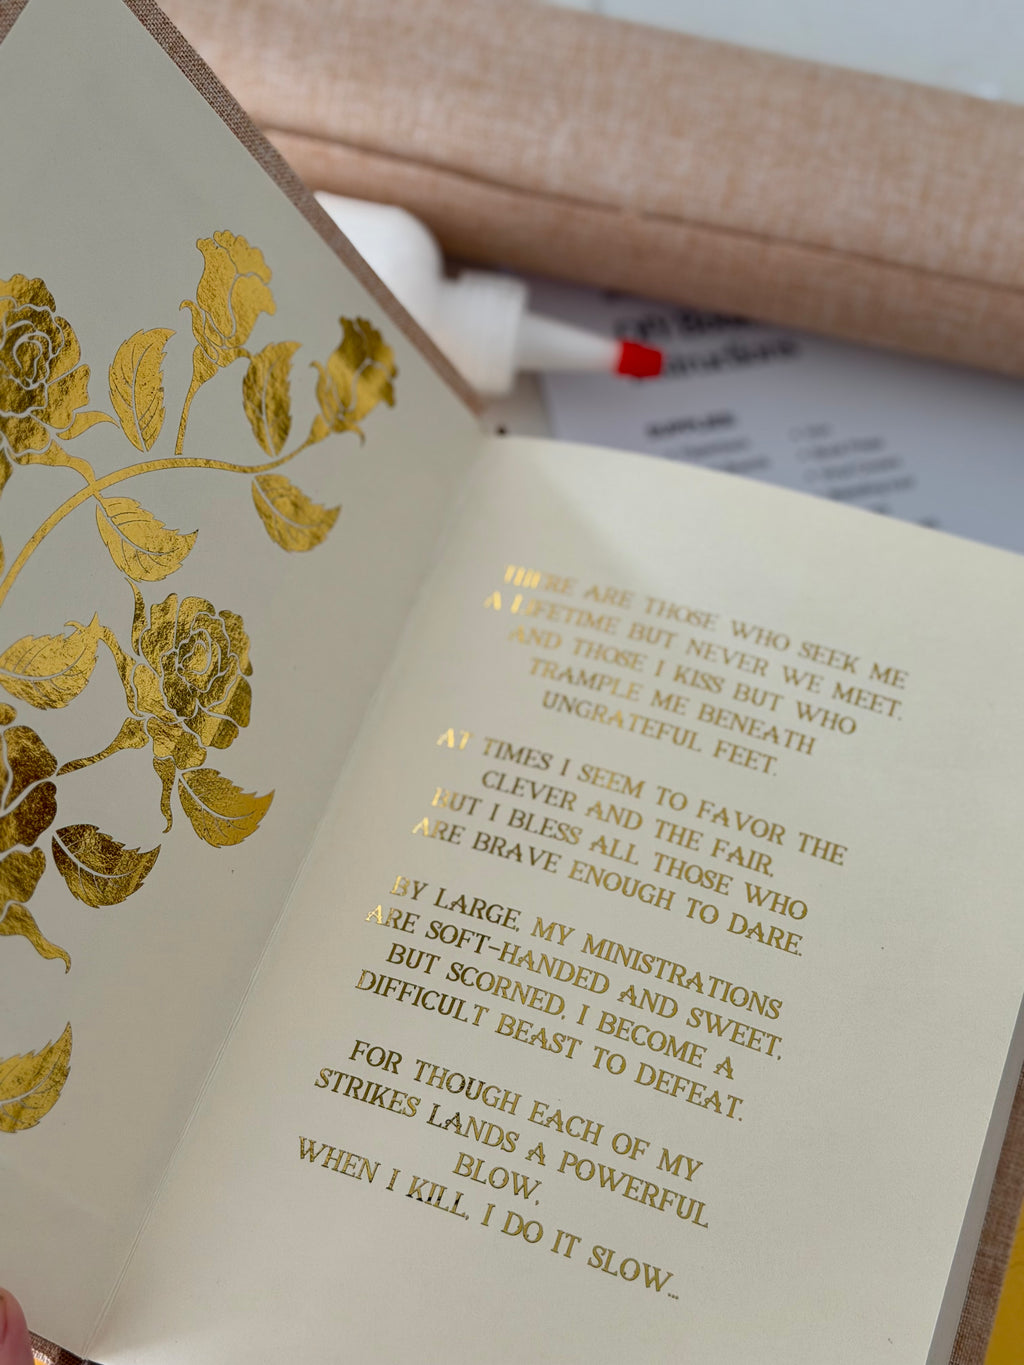 SUPPLIES
THERE ARE THOSE WHO SEEK ME
A LIFETIME BUT NEVER WE MEET.
AND THOSE I KISS BUT WHO
TRAMPLE ME BENEATH
UNGRATEFUL FEET.
AT TIMES I SEEM TO FAVOR THE
CLEVER AND THE FAIR,
BUT I BLESS ALL THOSE WHO
ARE BRAVE ENOUGH TO DARE.
BY LARGE, MY MINISTRATIONS
ARE SOFT-HANDED AND SWEET,
BUT SCORNED, I BECOME A
DIFFICULT BEAST TO DEFEAT.
FOR THOUGH EACH OF MY
STRIKES LANDS A POWERFUL
BLOW,
WHEN I KILL, I DO IT SLOW...